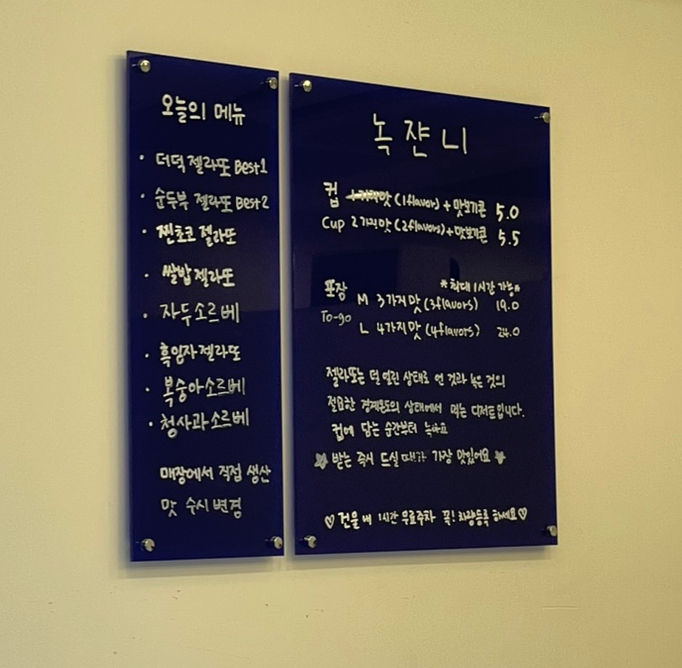 오늘의 메뉴
· 더덕 젤라또 Best1
· 순두부 젤라또 Best2
· 찐초코 젤라또
· 쌀밥 젤라또
· 자두소르베
· 흑임자 젤라또
· 복숭아소르베
· 청사과소르베
매장에서 직접 생산
맛 수시 변경
녹쟌니
컵 1가지맛 (1flavors) + 맛보기콘 5.0
Cup 2가지맛 (2flavors) + 맛보기콘 5.5
*최대 1시간 가능*
포장 M 3가지맛 (3flavors) 19.0
To-go L 4가지맛 (4flavors) 24.0
젤라또는 덜 얼린 상태로 언 것과 녹은 것의
절묘한 경계온도의 상태에서 먹는 디저트입니다.
컵에 담는 순간부터 녹아요
받는 즉시 드실 때가 가장 맛있어요
♡ 건물 내 1시간 무료주차 꼭! 차량등록 하세요 ♡